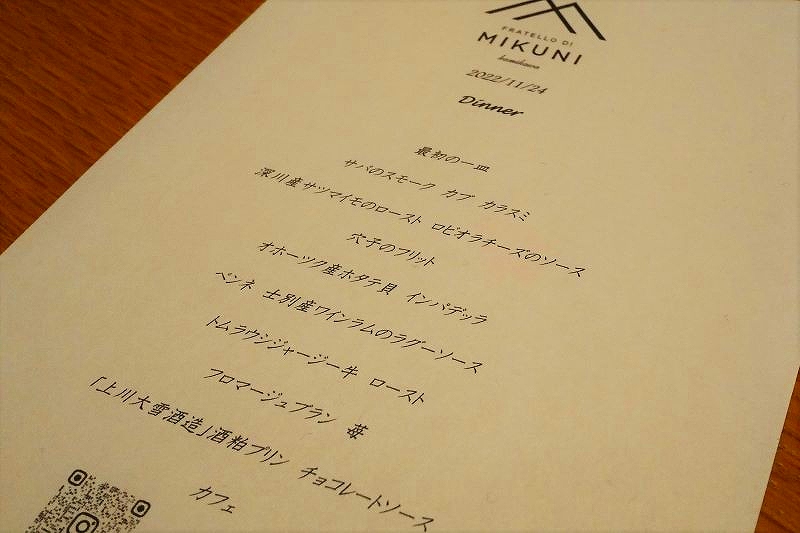 FRATELLO DI
MIKUNI
kamikawa
2022/11/24
Dinner
最初の一皿
サバのスモーク カブ カラスミ
深川産サツマイモのロースト ロビオラチーズのソース
穴子のフリット
オホーツク産ホタテ貝 インパデッラ
ペンネ 士別産ワインラムのラグーソース
トムラウシジャージー牛 ロースト
フロマージュブラン 苺
「上川大雪酒造」酒粕プリン チョコレートソース
カフェ